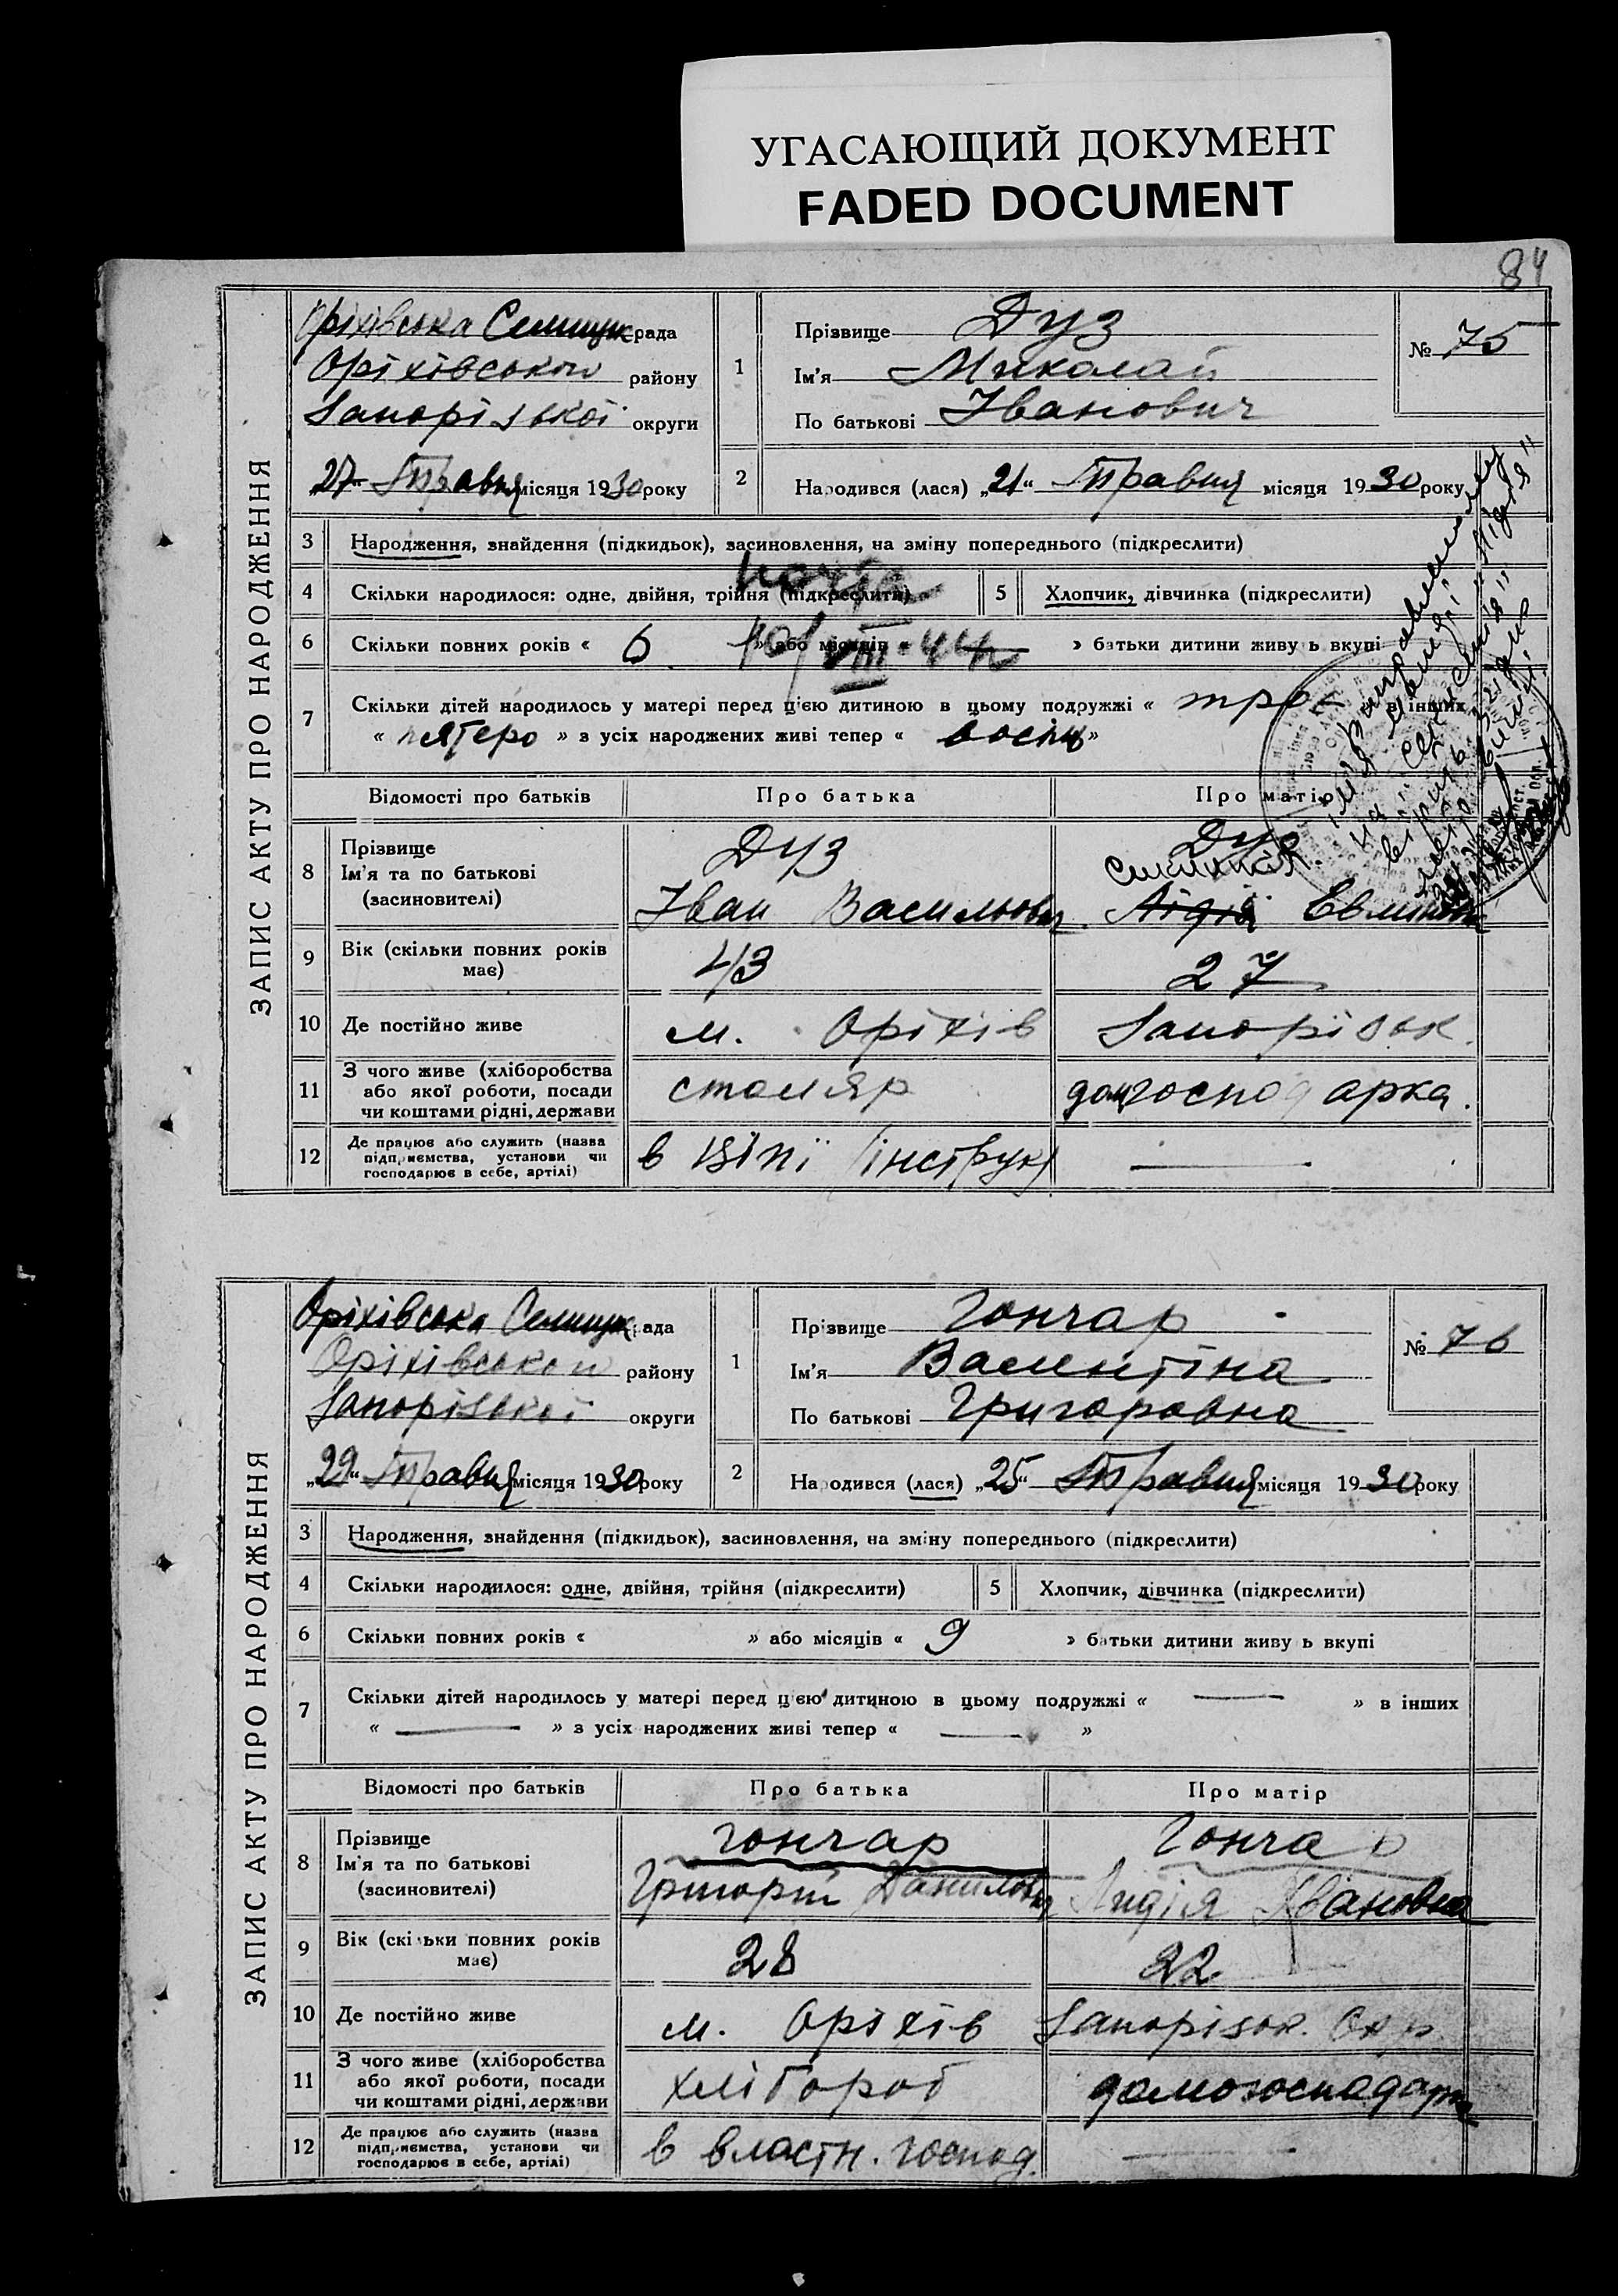 УГАСАЮЩИЙ ДОКУМЕНТ
FADED DOCUMENT
84
ЗАПИС АКТУ ПРО НАРОДЖЕННЯ
Оріхівська Селищн рада
Оріхівського району
Запорізької округи
„27“ Травня місяця 1930 року
1
Прізвище Дуз
Ім'я Миколай
По батькові Іванович
№ 75
2
Народився (лася) „21“ Травня місяця 1930 року
3 Народження, знайдення (підкидьок), засиновлення, на зміну попереднього (підкреслити)
4 Скільки народилося: одне, двійня, трійня (підкреслити)
5 Хлопчик, дівчинка (підкреслити)
6 Скільки повних років « 6 » або місяців « » батьки дитини живуть вкупі
VIII
7 Скільки дітей народилось у матері перед цією дитиною в цьому подружжі « троє » в інших
« пятеро » з усіх народжених живі тепер « восім »
Відомості про батьків Про батька Про матір
8 Прізвище
Ім'я та по батькові
(засиновителі)
Дуз
Іван Васильович
Дуз
Лідія
9 Вік (скільки повних років
має)
43 27
10 Де постійно живе м. Оріхів Запорізьк.
11 З чого живе (хліборобства
або якої роботи, посади
чи коштами рідні, держави
столяр домгосподарка.
12 Де працює або служить (назва
підприємства, установи чи
господарює в себе, артілі)
в
ЗАПИС АКТУ ПРО НАРОДЖЕННЯ
Оріхівська Селищн рада
Оріхівського району
Запорізької округи
„29“ Травня місяця 1930 року
1
Прізвище Гончар
Ім'я Валентіна
По батькові Григоровна
№ 76
2
Народився (лася) „25“ Травня місяця 1930 року
3 Народження, знайдення (підкидьок), засиновлення, на зміну попереднього (підкреслити)
4 Скільки народилося: одне, двійня, трійня (підкреслити)
5 Хлопчик, дівчинка (підкреслити)
6 Скільки повних років « » або місяців « 9 » батьки дитини живуть вкупі
7 Скільки дітей народилось у матері перед цією дитиною в цьому подружжі « — » в інших
« — » з усіх народжених живі тепер « — »
Відомості про батьків Про батька Про матір
8 Прізвище
Ім'я та по батькові
(засиновителі)
Гончар
Григорій Данилович
Гончар
Лидія Івановна
9 Вік (скільки повних років
має)
28 22
10 Де постійно живе м. Оріхів Запорізьк. Окр.
11 З чого живе (хліборобства
або якої роботи, посади
чи коштами рідні, держави
хлібороб домогосподарка
12 Де працює або служить (назва
підприємства, установи чи
господарює в себе, артілі)
в властн. господ. —